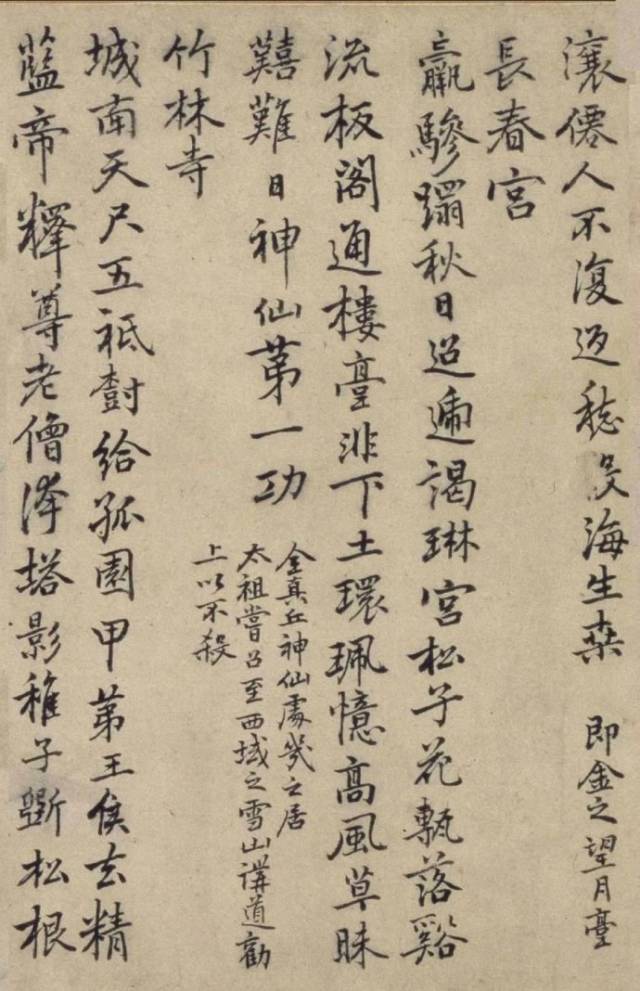 瀼僊人不復返愁見海生桑 即金之望月臺
長春宮
羸驂蹋秋日迢遞謁琳宮松子花甎落谿
流板閣通樓臺非下土環珮憶高風草昧
艱難日神仙第一功
全真丘神仙處幾之居
太祖嘗召至西域之雪山講道勸
上以不殺
竹林寺
城南天尺五祗樹給孤園甲第王侯去精
藍帝釋尊老僧塔影稚子斲松根